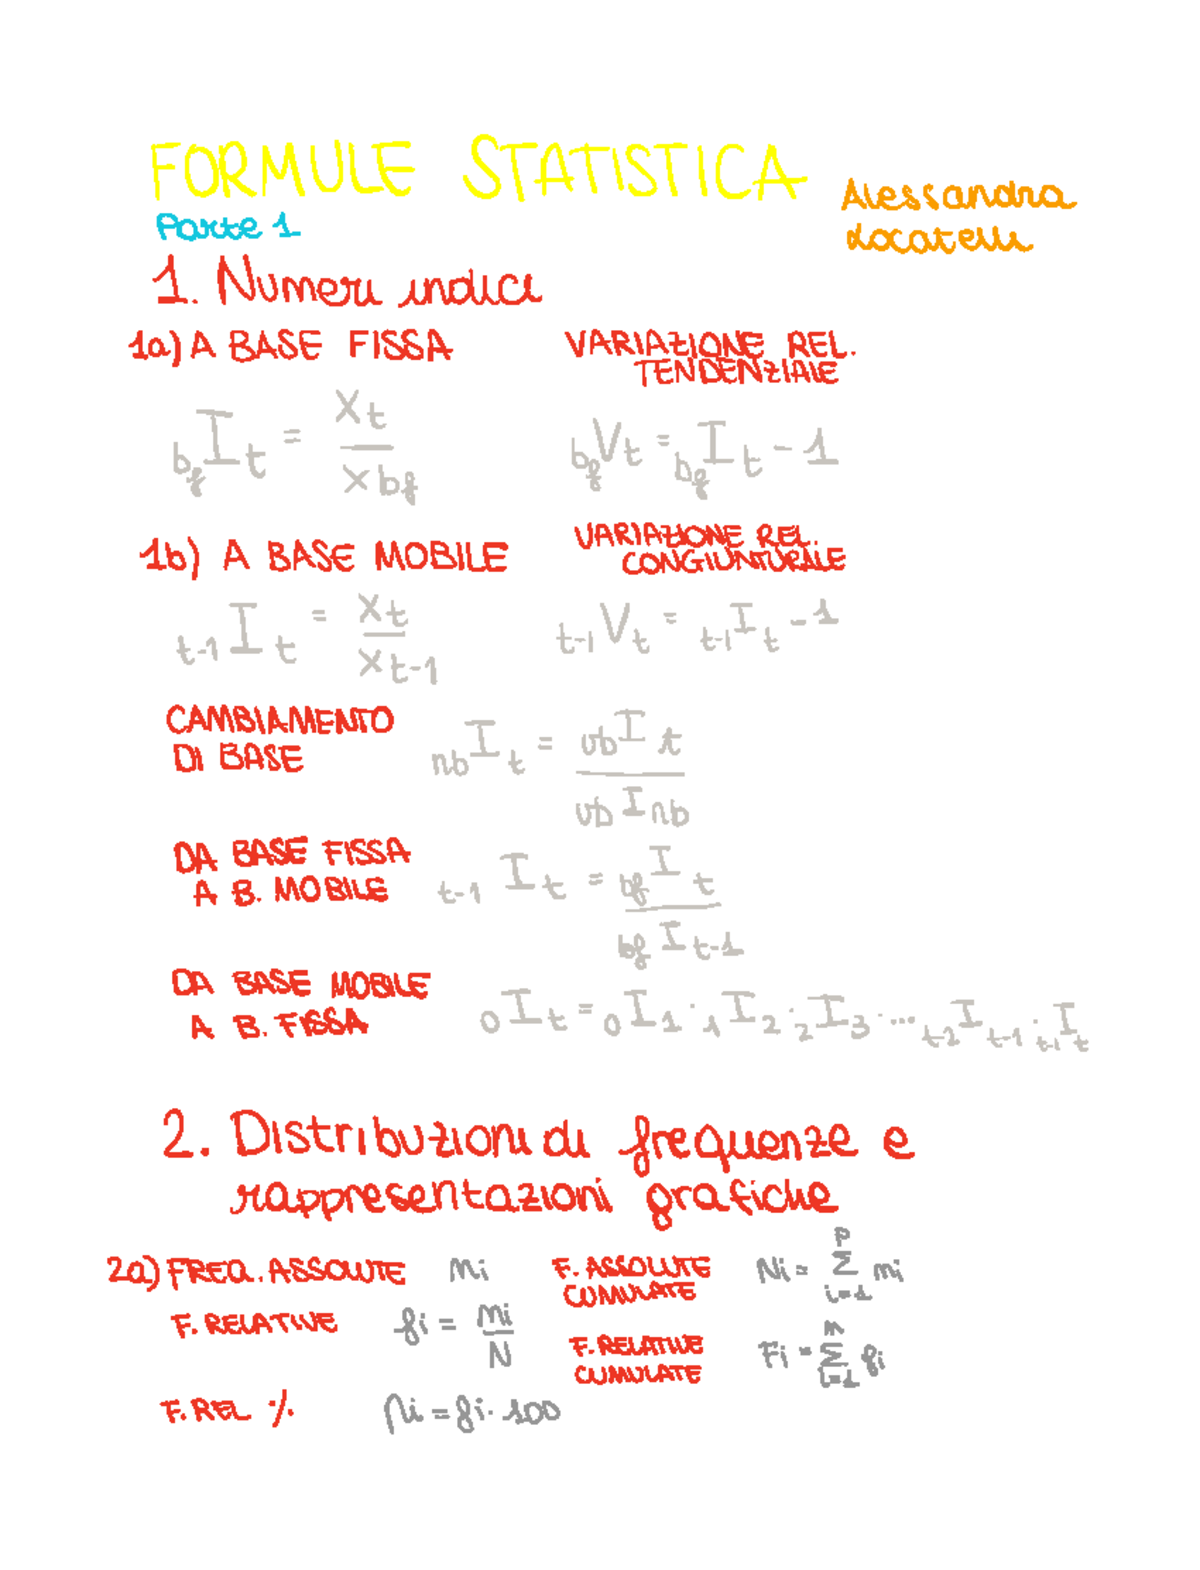 FORMULE STATISTICA
Alessandra
Locatelli
Parte 1
1. Numeri indici
1a) A BASE FISSA
VARIAZIONE REL.
TENDENZIALE
bf I t = x t / x bf
bf V t = bf I t - 1
1b) A BASE MOBILE
VARIAZIONE REL.
CONGIUNTURALE
t-1 I t = x t / x t-1
t-1 V t = t-1 I t - 1
CAMBIAMENTO
DI BASE
nb I t = vb I t / vb I nb
DA BASE FISSA
A B. MOBILE
t-1 I t = bf I t / bf I t-1
DA BASE MOBILE
A B. FISSA
0 I t = 0 I 1 · 1 I 2 · 2 I 3 · ... t-2 I t-1 · t-1 I t
2. Distribuzioni di frequenze e
rappresentazioni grafiche
2a) FREQ. ASSOLUTE ni
F. ASSOLUTE
CUMULATE
Ni = Σ i=1 ni
F. RELATIVE fi = ni / N
F. RELATIVE
CUMULATE
Fi = Σ i=1 fi
F. REL % = fi · 100